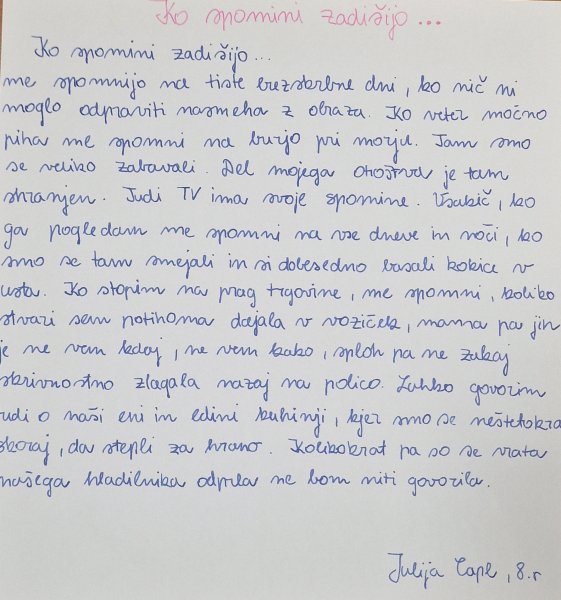 Ko spomini zadišijo...
Ko spomini zadišijo...
me spomnijo na tiste brezskrbne dni, ko nič ni
moglo odpraviti nasmeha z obraza. Ko veter močno
piha me spomni na burjo pri morju. Tam smo
se veliko zabavali. Del mojega otroštva je tam
shranjen. Tudi TV ima svoje spomine. Vsakič, ko
ga pogledam me spomni na vse dneve in noči, ko
smo se tam smejali in si dobesedno basali kokice v
usta. Ko stopim na prag trgovine, me spomni, koliko
stvari sem potihoma dajala v voziček, mama pa jih
je ne vem kdaj, ne vem kako, sploh pa ne zakaj
skrivnostno zlagala nazaj na polico. Lahko govorim
tudi o naši eni in edini kuhinji, kjer smo se neštetokrat
skoraj, da stepli za hrano. Kolikokrat pa so se vrata
našega hladilnika odprla ne bom niti govorila.
Julija Capl, 8.r